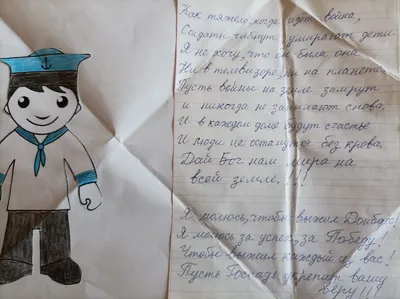 Как тяжело, когда идет война,
Солдаты гибнут, умирают дети
Я не хочу, что бы была она
Ни в телевизоре, ни на планете.
Пусть войны на земле замрут
и никогда не запылают снова.
И в каждом доме будут счастье
И люди не останутся без крова.
Дай Бог нам мира на
всей земле. !!!
Я молюсь, чтобы выжил Донбасс!
Я молюсь за успех, за Победу!
Чтобы выжил каждый из вас!
Пусть Господь укрепит вашу
веру!!!